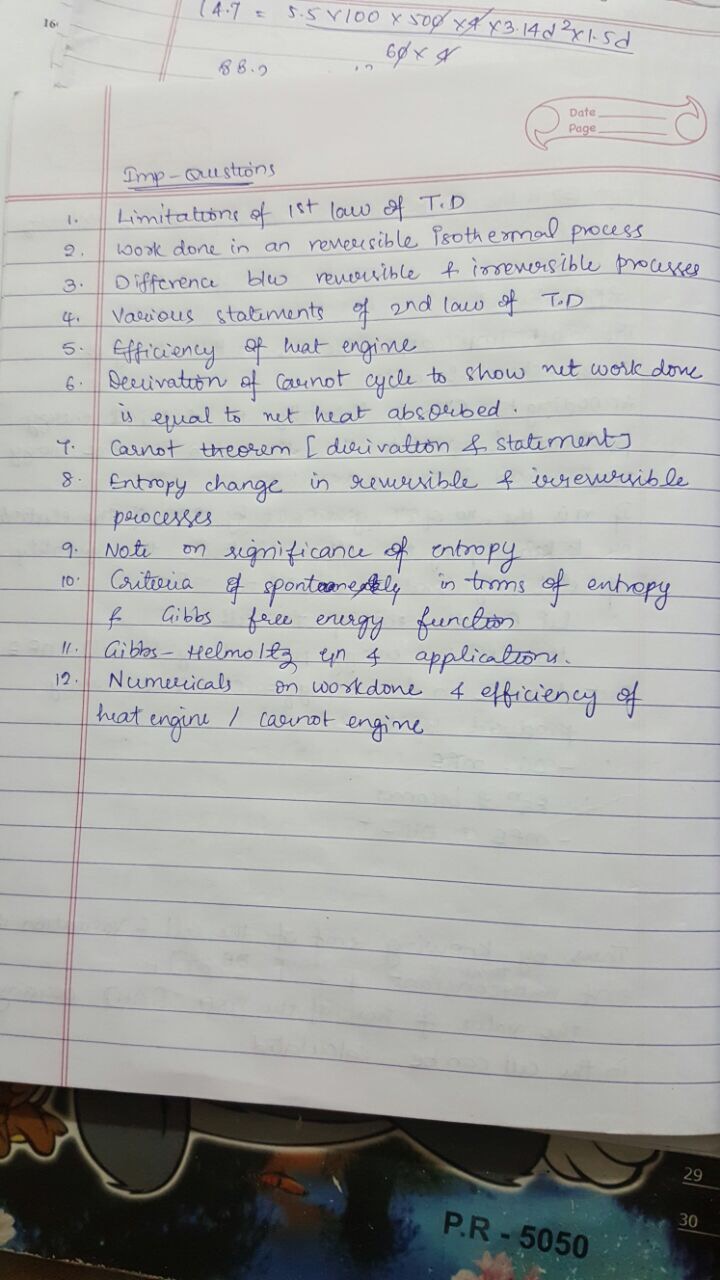 16
14.7 = 5.5 × 100 × 500 × 4 × 3.14d² × 1.5d
60 × 4
88.2
Date
Page
Imp - Questions
1. Limitations of 1st law of T.D
2. Work done in an reversible isothermal process
3. Difference b/w reversible & irreversible processes
4. Various statements of 2nd law of T.D
5. Efficiency of heat engine
6. Derivation of Carnot cycle to show net work done
is equal to net heat absorbed.
7. Carnot theorem [derivation & statement]
8. Entropy change in reversible & irreversible
processes
9. Note on significance of entropy
10. Criteria of in terms of entropy
& Gibbs free energy function
11. Gibbs - Helmoltz eqn & applications.
12. Numericals on workdone & efficiency of
heat engine / carnot engine
29
30
P.R - 5050